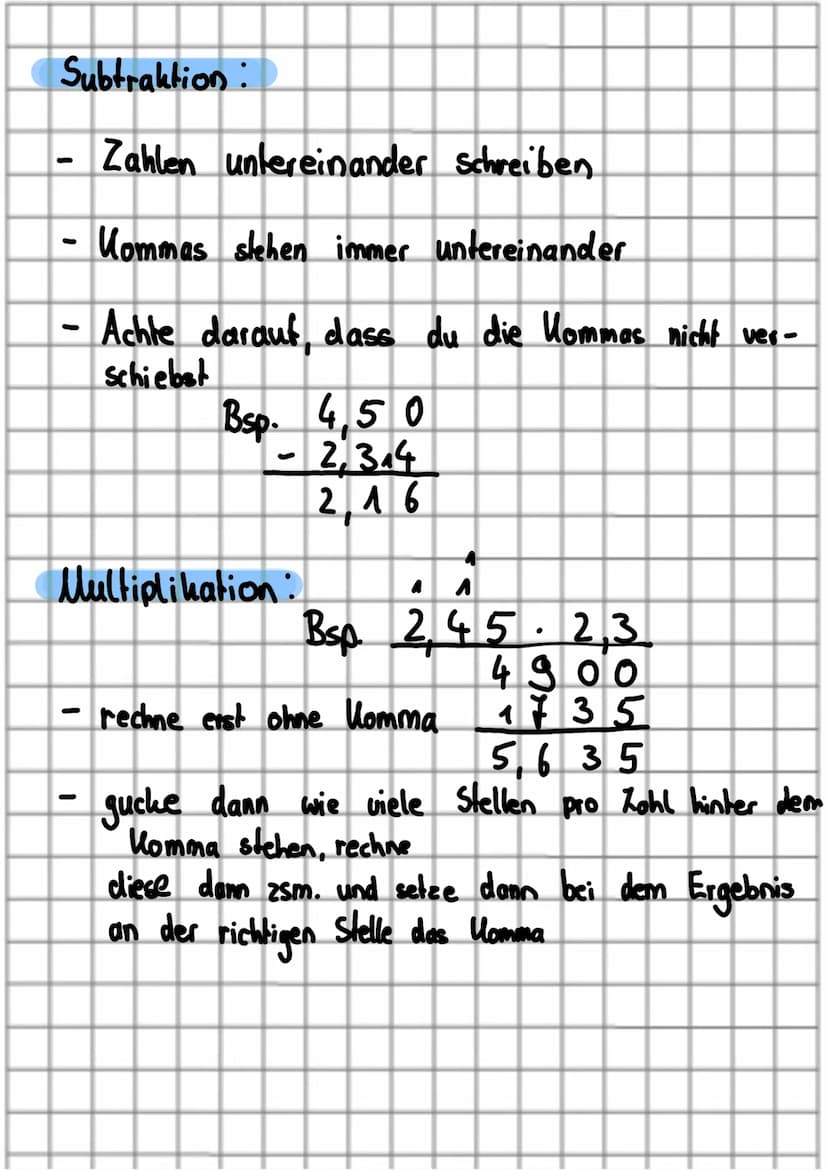 Subtraktion:
- Zahlen untereinander schreiben
- Kommas stehen immer untereinander
- Achte darauf, dass du die Kommas nicht ver-
schiebst
Bsp. 4,50
- 2,3₁4
2,16
1
Multiplikation: 1 1
Bsp. 2,45 · 2,3
4900
- rechne erst ohne Komma 1735
5,635
- gucke dann wie viele Stellen pro Zahl hinter dem
Komma stehen, rechne
diese dann zsm. und setze dann bei dem Ergebnis
an der richtigen Stelle das Komma